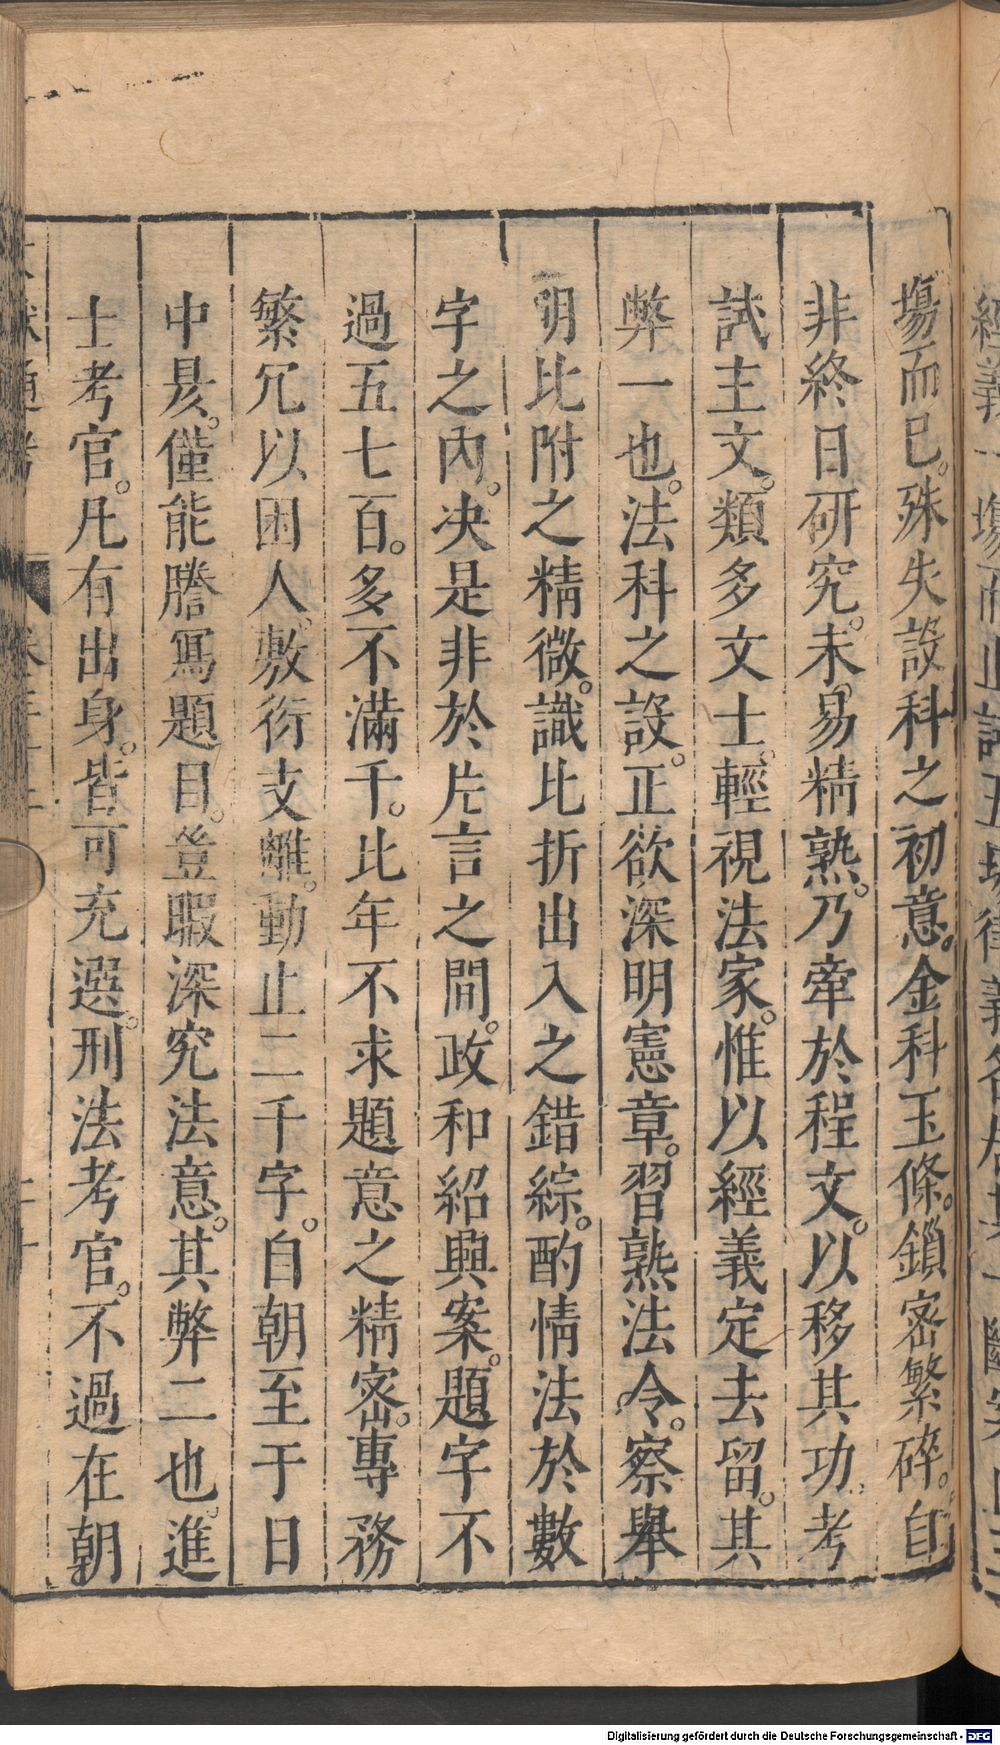 場而已。殊失設科之初意。金科玉條。鎖密繁碎。自
非終日研究。未易精熟。乃牽於程文。以移其功。考
試主文。類多文士。輕視法家。惟以經義定去留。其
弊一也。法科之設。正欲深明憲章。習熟法令。察舉
明比附之精微。識比折出入之錯綜。酌情法於數
字之內。决是非於片言之間。政和紹興案。題字不
過五七百。多不滿千。比年不求題意之精密。專務
繁冗以困人。敷衍支離。動止二千字。自朝至于日
中昃。僅能謄寫題目。豈暇深究法意。其弊二也。進
士考官。凡有出身。皆可充選。刑法考官。不過在朝
Digitalisierung gefördert durch die Deutsche Forschungsgemeinschaft - DFG